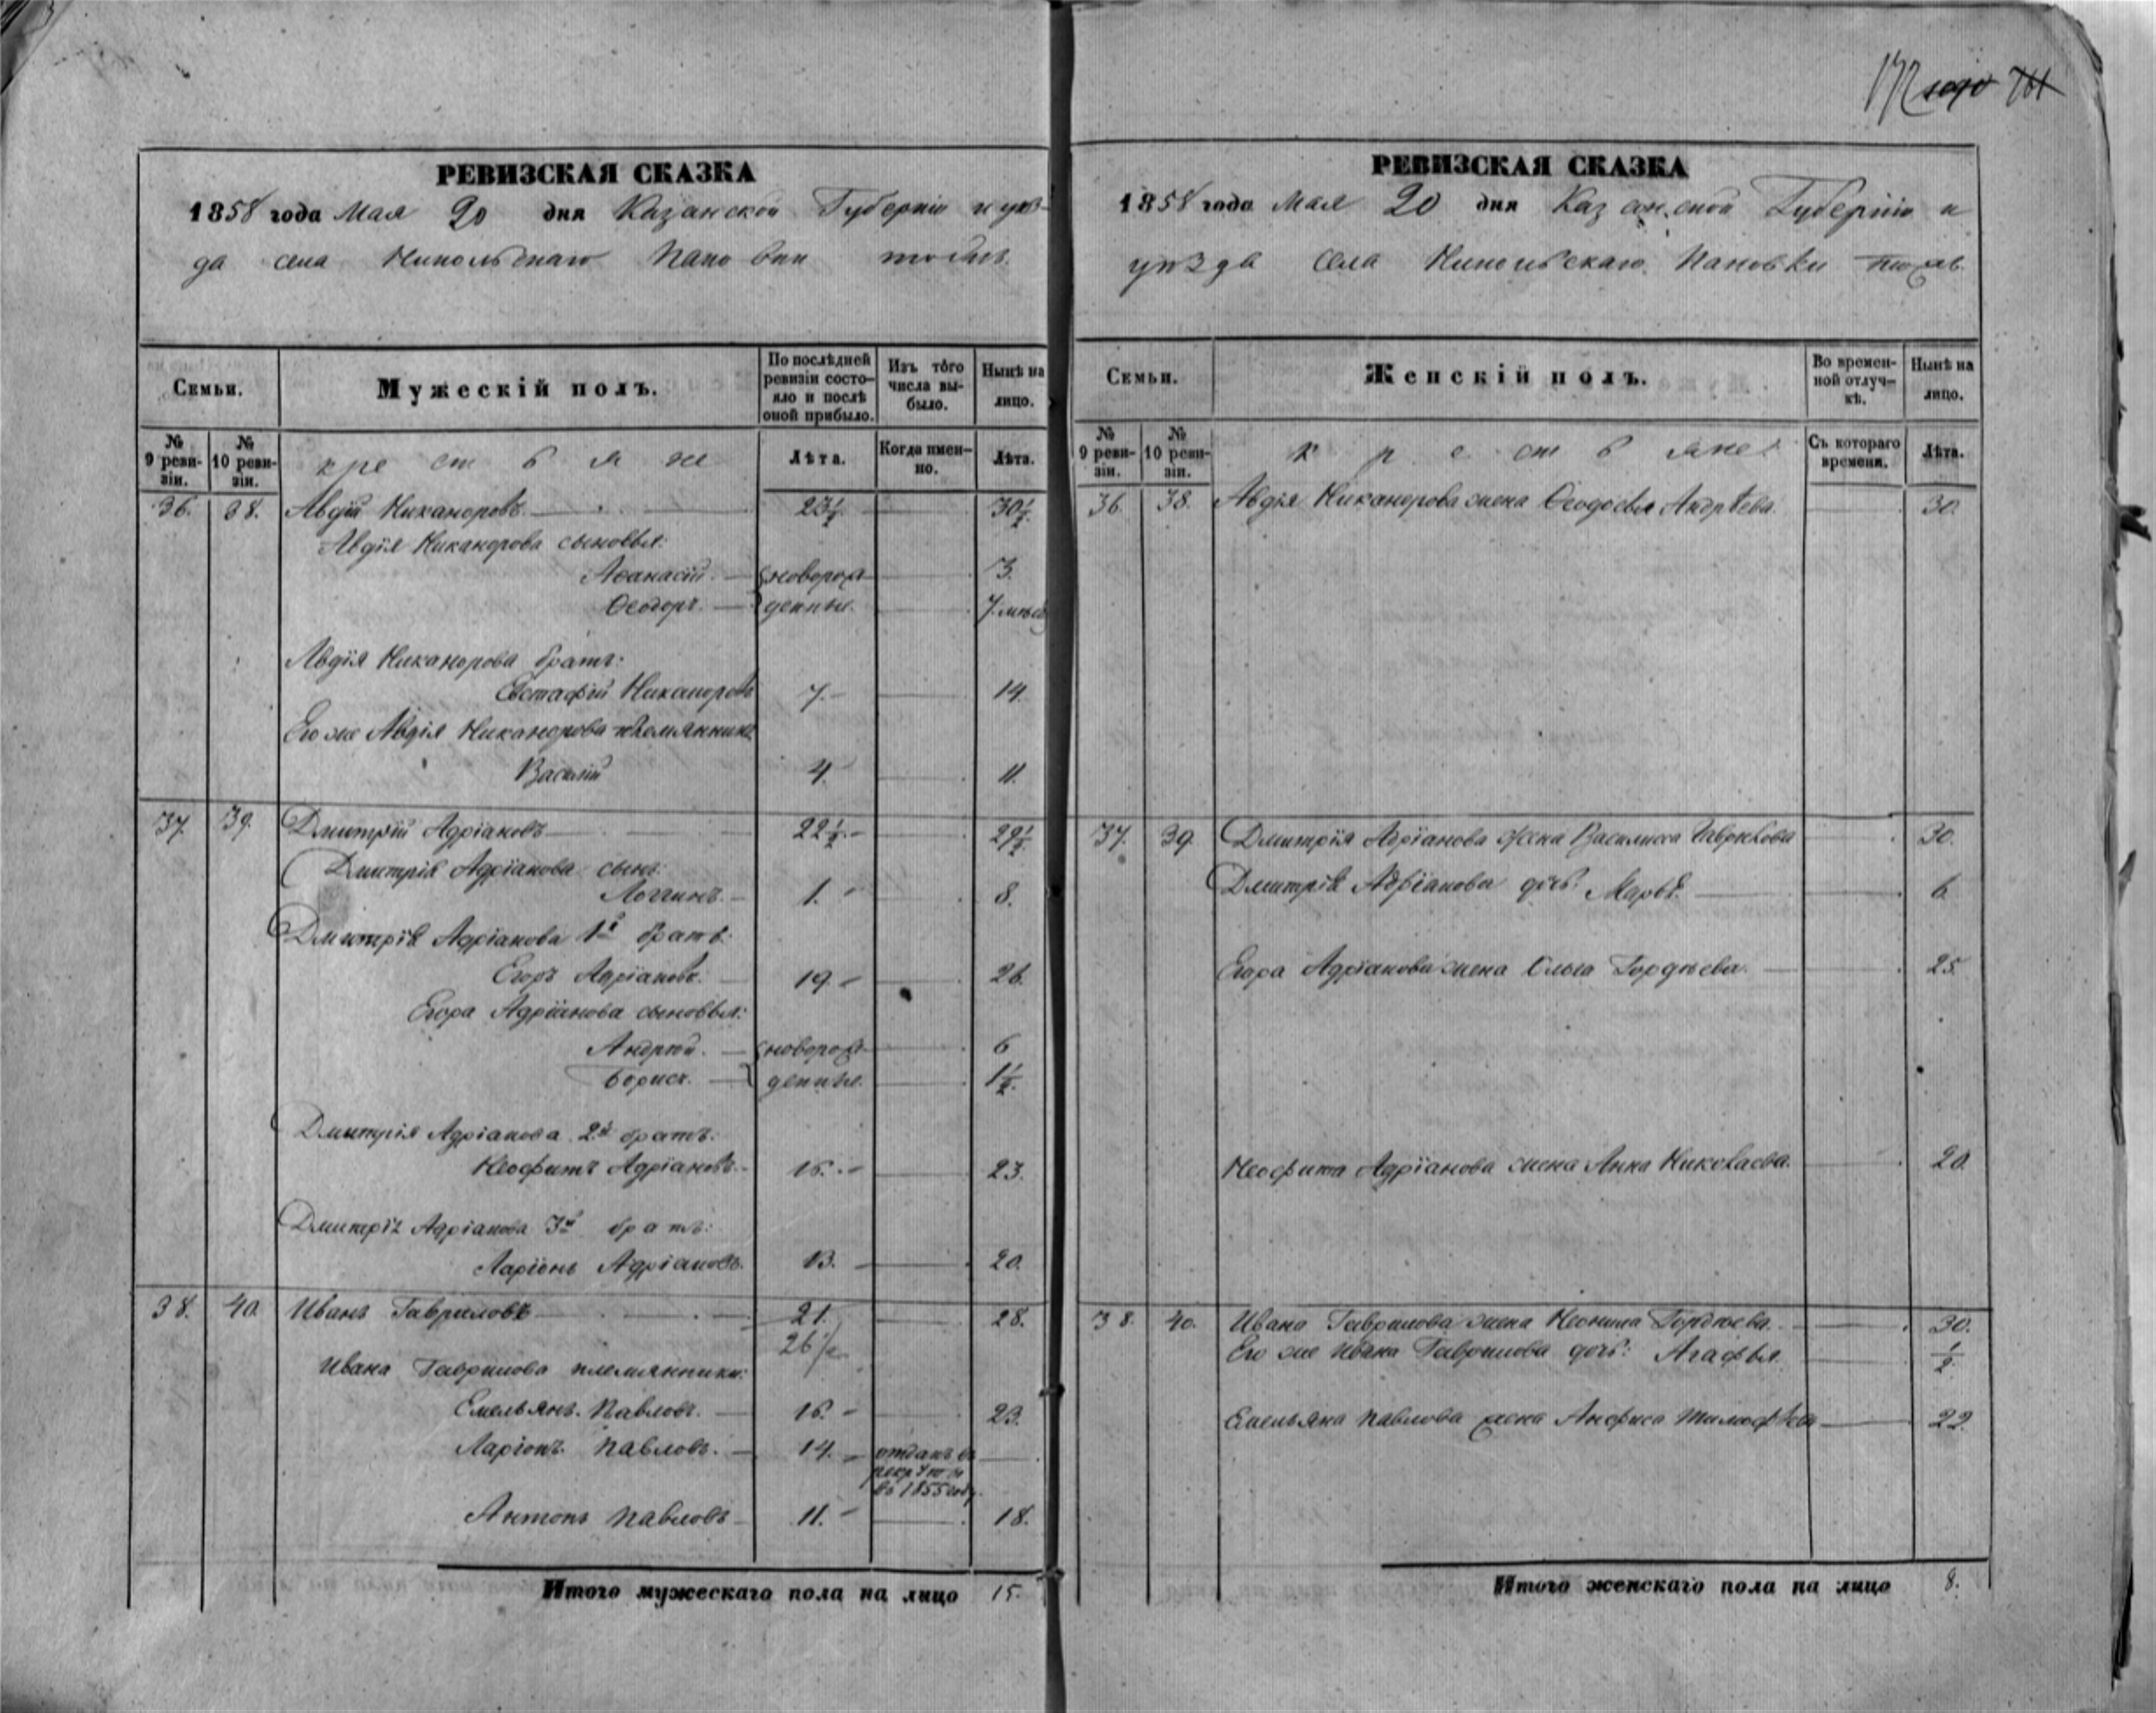 РЕВИЗСКАЯ СКАЗКА
1858 года Мая 20 дня Казанской Губерніи и уѣз-
да села Никольскаго Пановки тожъ.
Семьи.
Мужескій полъ.
По послѣдней ревизіи состо-яло и послѣ оной прибыло.
Изъ того числа вы-было.
Нынѣ на лицо.
№ 9 реви-зіи.
№ 10 реви-зіи.
крестьяне
Лѣта.
Когда имен-но.
Лѣта.
36. 38. Авдій Никаноровъ. 23½ 30½
Авдія Никанорова сыновья:
Аѳанасій. новорож- 3.
Ѳеодоръ. денные. 7 мѣсяц
Авдія Никанорова братъ:
Евстафій Никаноровъ 7. 14.
Его же Авдія Никанорова племянникъ
Василій 4. 11.
37. 39. Дмитрій Адріановъ 22½. 29½.
Дмитрія Адріанова сынъ:
Логгинъ. 1. 8.
Дмитрія Адріанова 1й братъ:
Егоръ Адріановъ. 19. 26.
Егора Адріанова сыновья:
Андрей. новорож- 6
Борисъ. денные. 1½.
Дмитрія Адріанова 2й братъ:
Неофитъ Адріановъ. 16. 23.
Дмитрія Адріанова 3й братъ:
Ларіонъ Адріановъ. 13. 20.
38. 40. Иванъ Гавриловъ 21. 28.
26½
Ивана Гаврилова племянники:
Емельянъ Павловъ. 16. 23.
Ларіонъ Павловъ. 14. отданъ въ
рекруты
въ 1855 году.
Антонъ Павловъ 11. 18.
Итого мужескаго пола на лицо 15.
РЕВИЗСКАЯ СКАЗКА
1858 года Мая 20 дня Казанской Губерніи и
уѣзда села Никольскаго Пановки тожъ.
Семьи.
Женскій полъ.
Во времен-ной отлуч-кѣ.
Нынѣ на лицо.
№ 9 реви-зіи.
№ 10 реви-зіи.
крестьяне.
Съ котораго времени.
Лѣта.
36. 38. Авдія Никанорова жена Ѳеодосья Андрѣева. 30.
37. 39. Дмитрія Адріанова жена Василиса Гаврилова 30.
Дмитрія Адріанова дочь: Марья. 6.
Егора Адріанова жена Ольга Гордѣева. 25.
Неофита Адріанова жена Анна Николаева. 20.
38. 40. Ивана Гаврилова жена Неонила Гордѣева. 30.
Его же Ивана Гаврилова дочь: Агафья. ½.
Емельяна Павлова жена Анфиса Тимофѣева 22.
Итого женскаго пола на лицо 8.